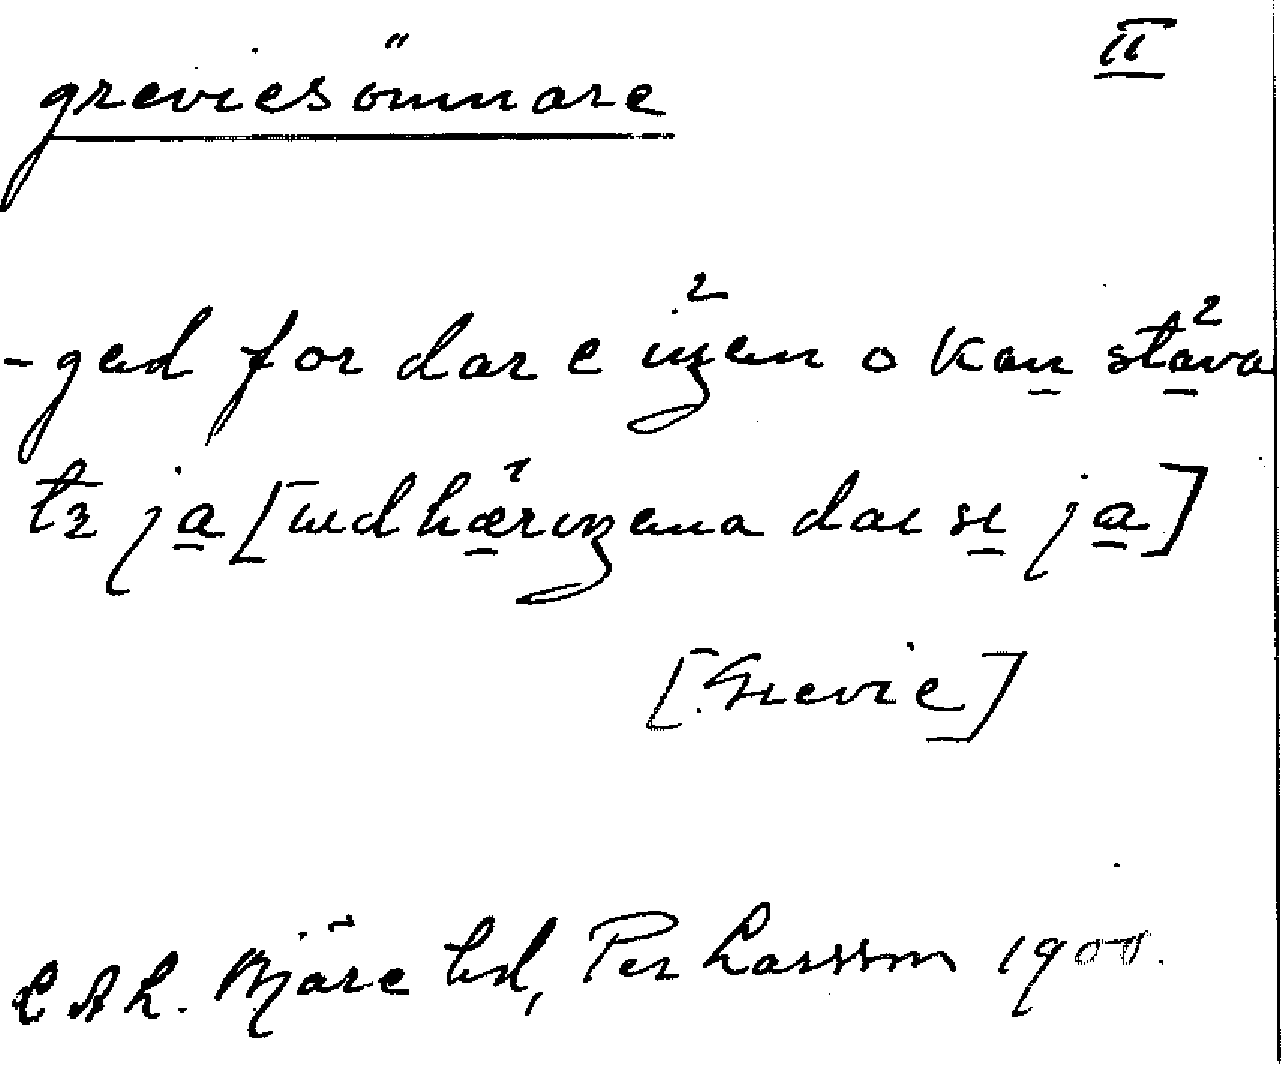 greviesömnare II
-ged for dar e iŋen² o kan stava²
te ja [udhäriŋena dar se ja]
[Grevie]
L A L. Bjäre hd, Per Larsson 1900.